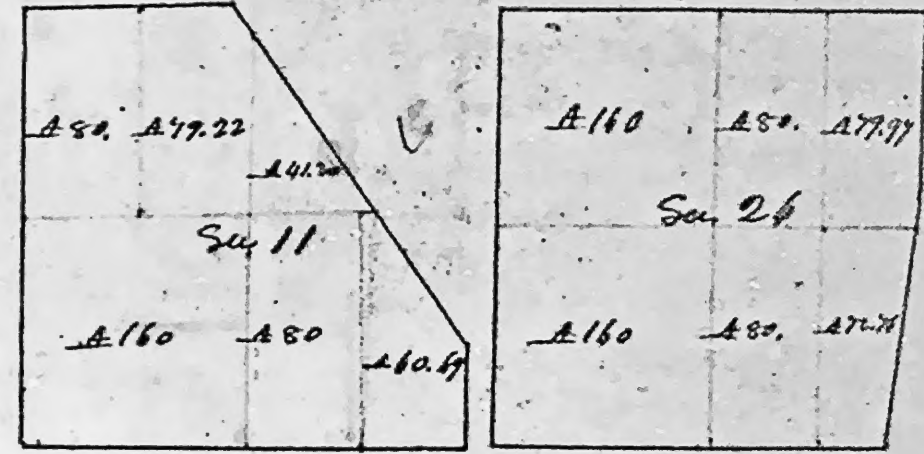 A 80. A 79.22
A 41.20
Sec 11
A 160 A 80
A 60.69
A 160 A 80. A 79.97
Sec 26
A 160 A 80.